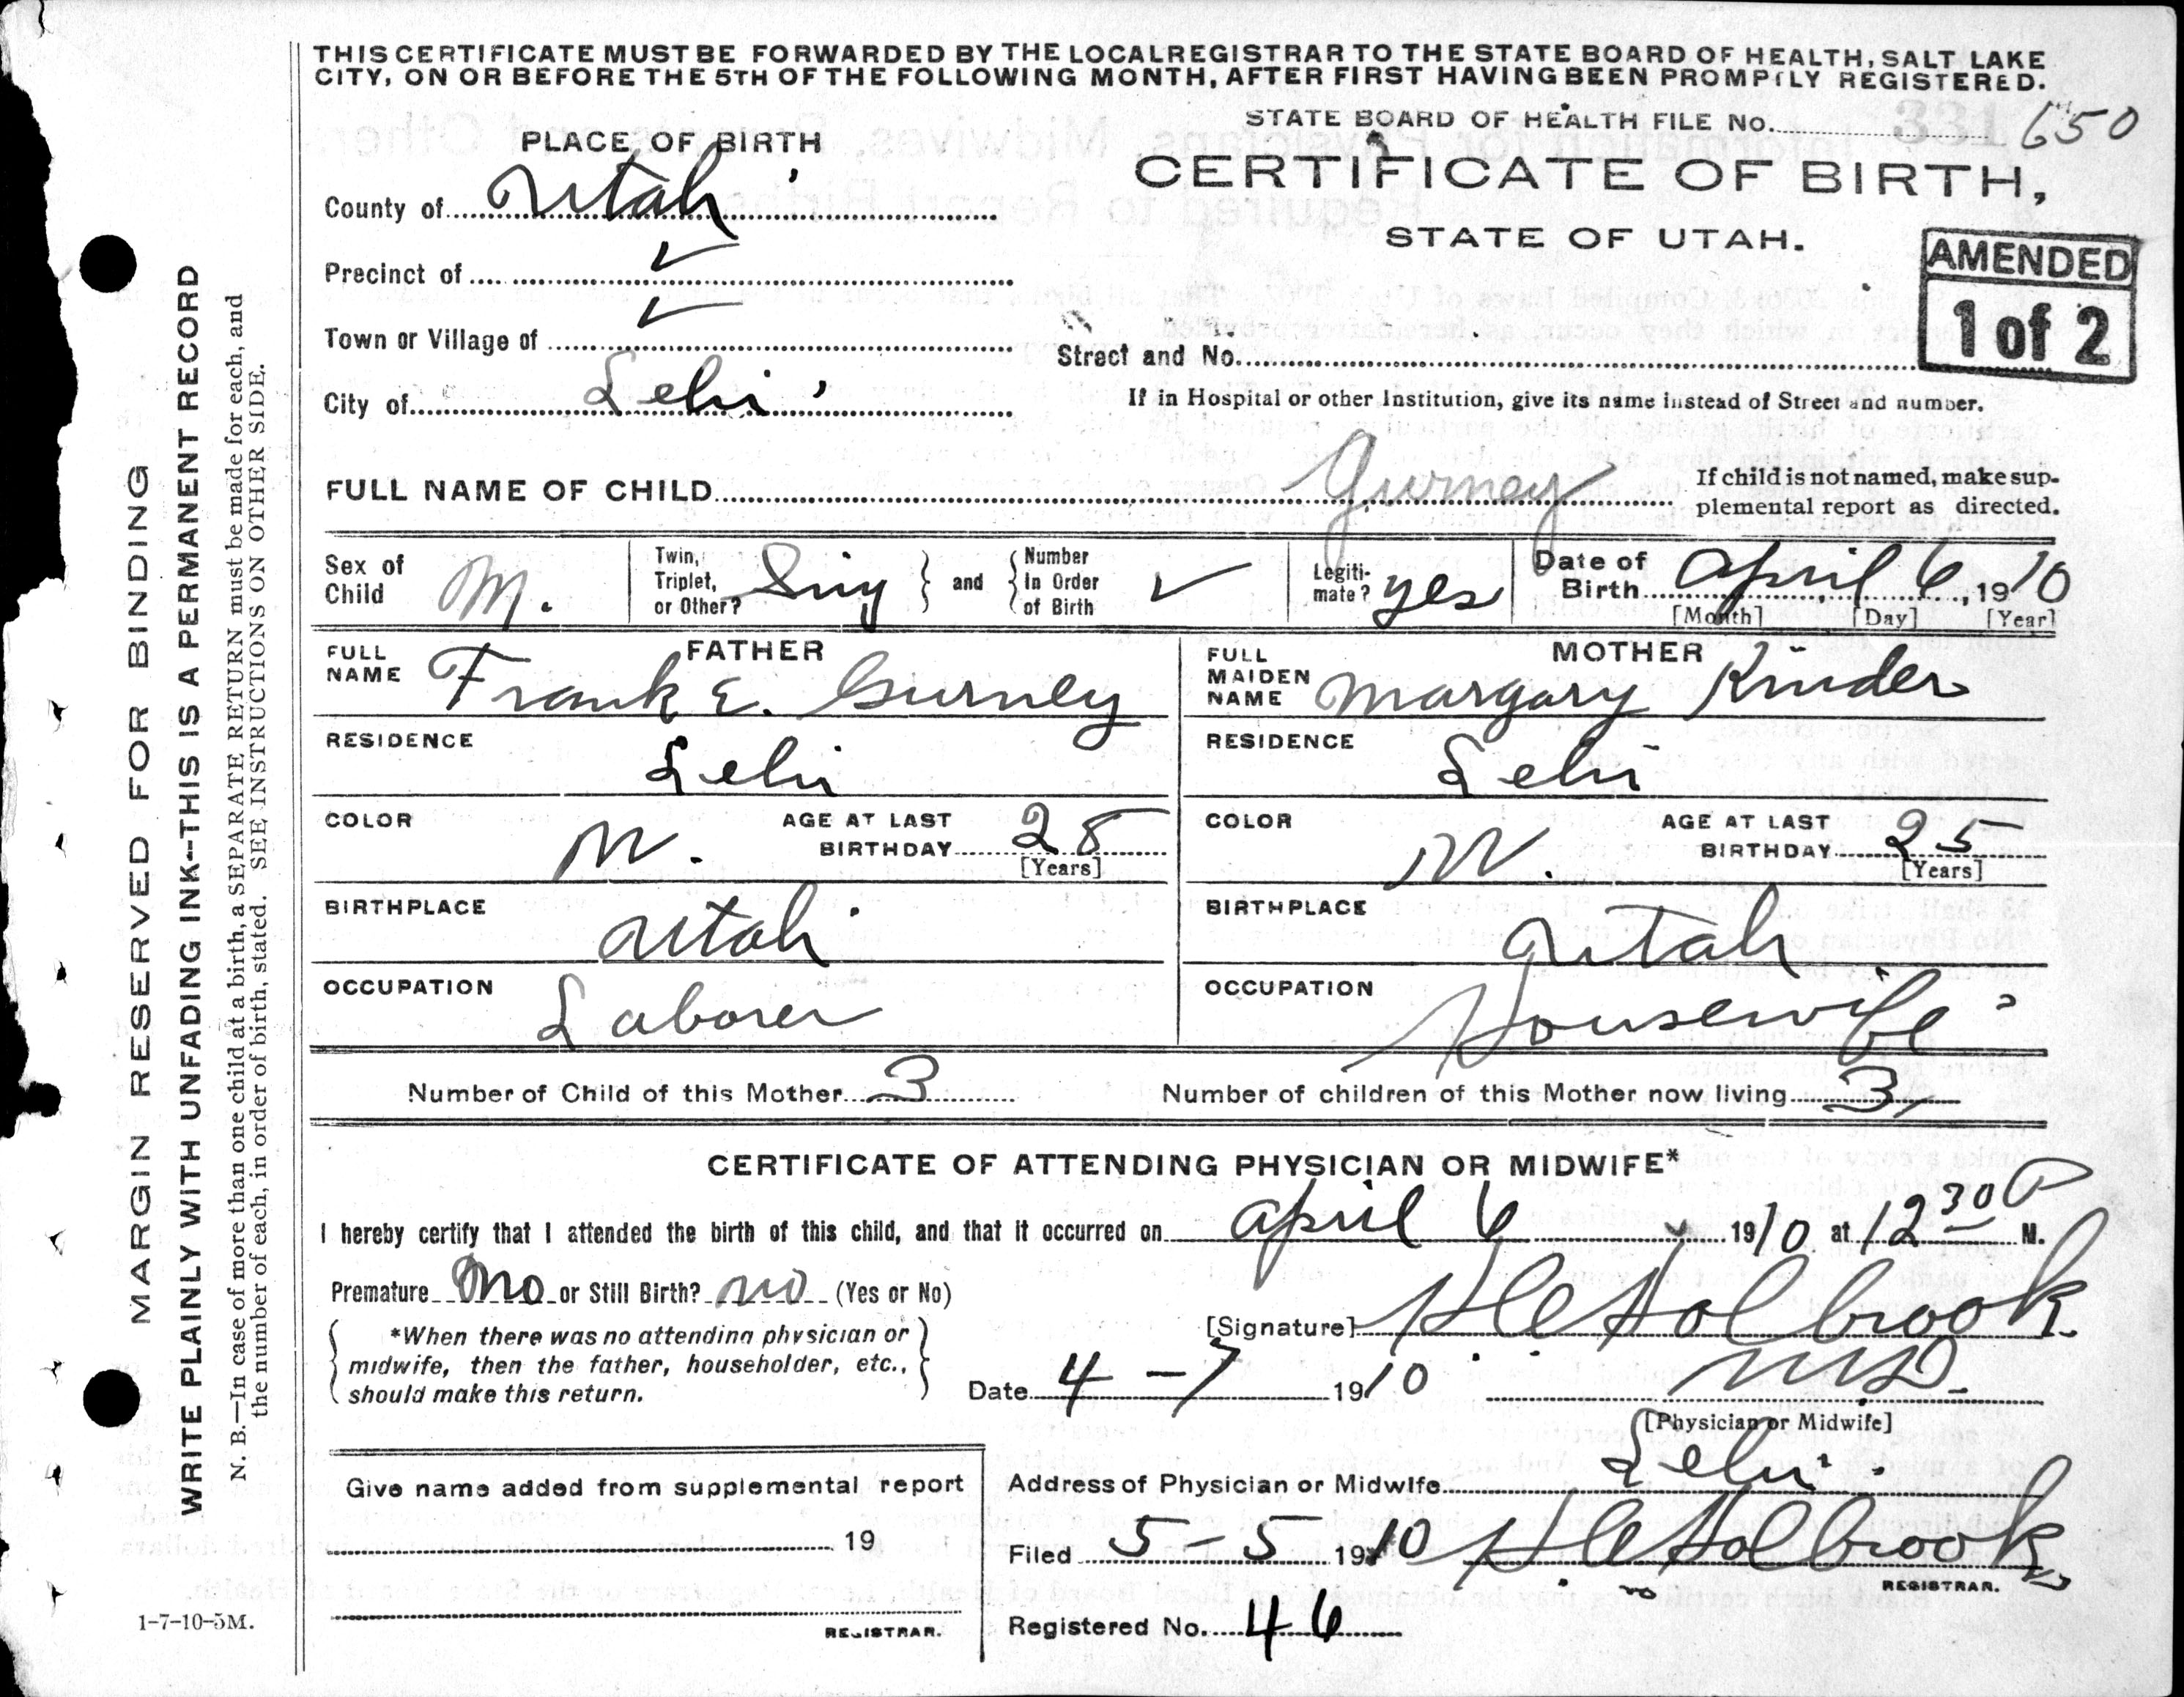 THIS CERTIFICATE MUST BE FORWARDED BY THE LOCAL REGISTRAR TO THE STATE BOARD OF HEALTH, SALT LAKE
CITY, ON OR BEFORE THE 5TH OF THE FOLLOWING MONTH, AFTER FIRST HAVING BEEN PROMPTLY REGISTERED.
STATE BOARD OF HEALTH FILE No. 331 650
PLACE OF BIRTH
CERTIFICATE OF BIRTH,
STATE OF UTAH.
AMENDED
1 of 2
County of Utah
Precinct of ✓
Town or Village of ✓
Street and No.
City of Lehi
If in Hospital or other Institution, give its name instead of Street and number.
FULL NAME OF CHILD Gurney
If child is not named, make sup-
plemental report as directed.
Sex of Child M.
Twin, Triplet, or Other? Sing
and
Number In Order of Birth ✓
Legiti-mate? yes
Date of Birth April 6, 1910
[Month] [Day] [Year]
FATHER
FULL NAME Frank E. Gurney
RESIDENCE Lehi
COLOR W. AGE AT LAST BIRTHDAY 28
[Years]
BIRTHPLACE Utah
OCCUPATION Laborer
MOTHER
FULL MAIDEN NAME Margary Kinder
RESIDENCE Lehi
COLOR W. AGE AT LAST BIRTHDAY 25
[Years]
BIRTHPLACE Utah
OCCUPATION Housewife
Number of Child of this Mother 3
Number of children of this Mother now living 3
CERTIFICATE OF ATTENDING PHYSICIAN OR MIDWIFE*
I hereby certify that I attended the birth of this child, and that it occurred on April 6 1910 at 12 30 P M.
Premature No or Still Birth? no (Yes or No)
*When there was no attending physician or
midwife, then the father, householder, etc.,
should make this return.
[Signature] Holbrook
Date 4-7 1910 MD.
[Physician or Midwife]
Give name added from supplemental report
19
REGISTRAR.
Address of Physician or Midwife Lehi
Filed 5-5 1910 Holbrook
REGISTRAR.
Registered No. 46
1-7-10-5M.
MARGIN RESERVED FOR BINDING
WRITE PLAINLY WITH UNFADING INK--THIS IS A PERMANENT RECORD
N. B.—In case of more than one child at a birth, a SEPARATE RETURN must be made for each, and
the number of each, in order of birth, stated. SEE INSTRUCTIONS ON OTHER SIDE.